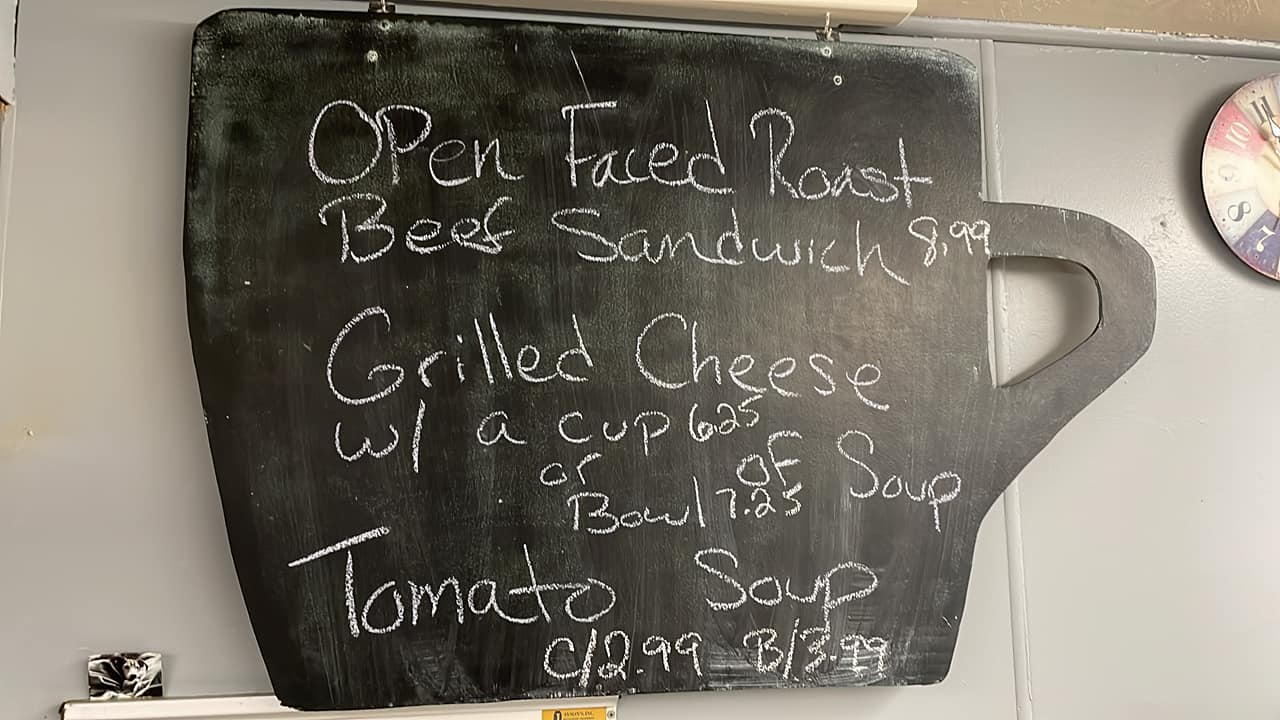 OPen Faced Roast
Beef Sandwich 8.99
Grilled Cheese
w/ a cup 6.25
or of Soup
Bowl 7.25
Tomato Soup
C/2.99 B/3.99
11
10
9
8
7